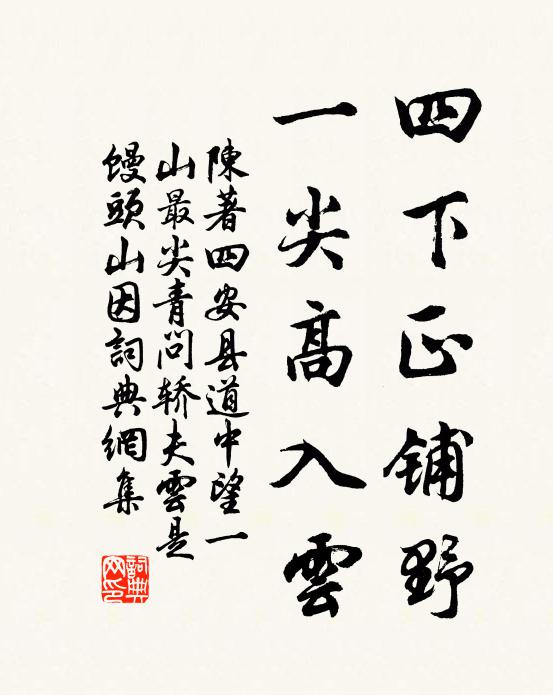 四下正铺野
一尖高入雲
陳著四安县道中望一
山最尖青问轿夫雲是
馒頭山因詞典網集
詞典网印